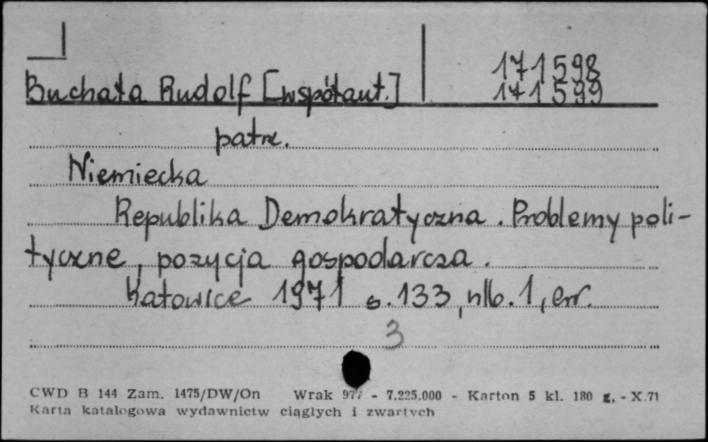 171598
Buchała Rudolf [współaut.] 171599
patrz.
Niemiecka
Republika Demokratyczna. Problemy poli-
tyczne, pozycja gospodarcza.
Katowice 1971 s. 133, nlb. 1, err.
3
CWD B 144 Zam. 1475/DW/On Wrak 977 - 7.225.000 - Karton 5 kl. 180 g. - X.71
Karta katalogowa wydawnictw ciągłych i zwartych